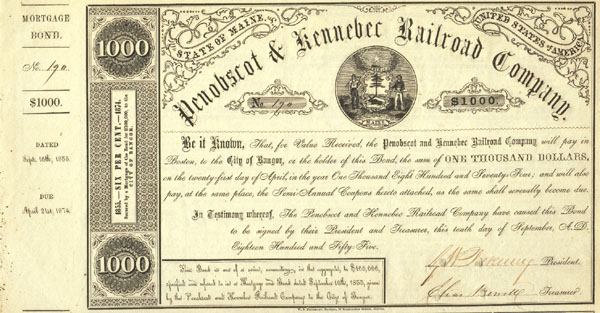 MORTGAGE
BOND.
No. 190.
$1000.
DATED
Sept. 10th, 1855.
DUE
April 21st, 1874.
1000
1855.—SIX PER CENT.—1874.
1000
STATE OF MAINE.
UNITED STATES OF AMERICA
Penobscot & Kennebec Railroad Company.
No. 190
$1000.
MAINE
Be it Known, That, for Value Received, the Penobscot and Kennebec Railroad Company will pay in
Boston, to the City of Bangor, or the holder of this Bond, the sum of ONE THOUSAND DOLLARS,
on the twenty-first day of April, in the year One Thousand Eight Hundred and Seventy-Four, and will also
pay, at the same place, the Semi-Annual Coupons hereto attached, as the same shall severally become due.
In Testimony whereof, The Penobscot and Kennebec Railroad Company have caused this Bond
to be signed by their President and Treasurer, this tenth day of September, A. D.
Eighteen Hundred and Fifty-Five.
This Bond is one of a series, amounting, in the aggregate, to
specified and referred to in a Mortgage and Bond dated September 10th, 1855, given
by the Penobscot and Kennebec Railroad Company to the City of Bangor.
President.
Treasurer